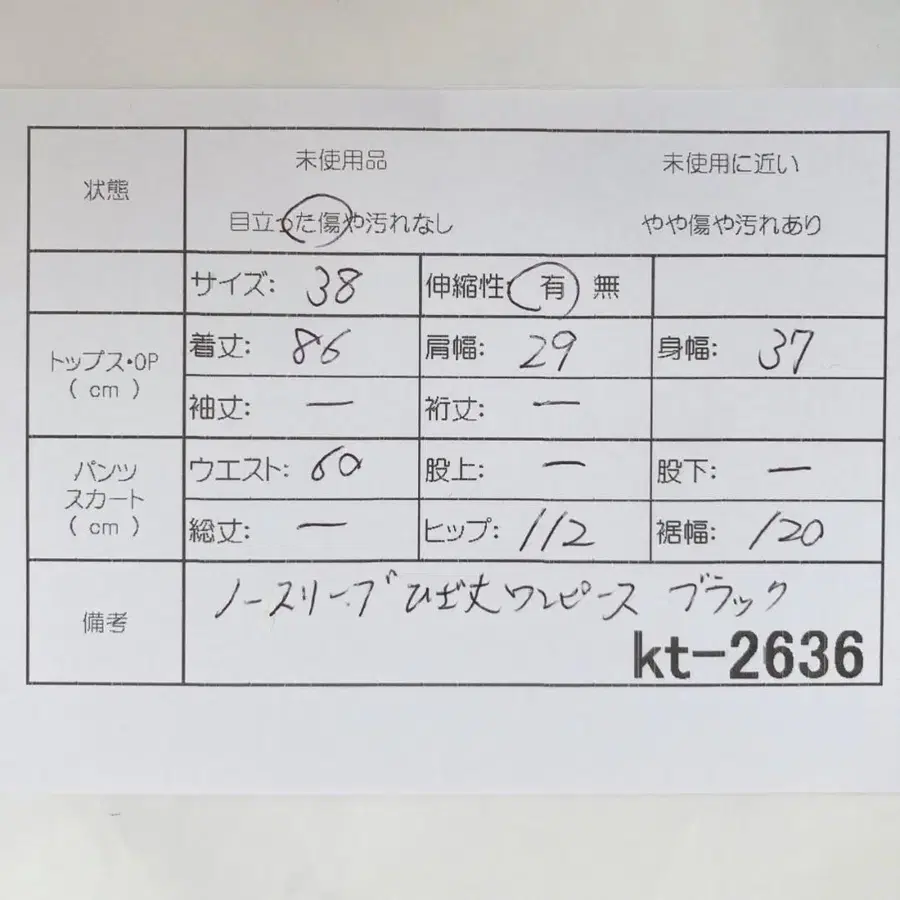 状態
未使用品 未使用に近い
目立った傷や汚れなし やや傷や汚れあり
サイズ: 38 伸縮性: 有 無
トップス・OP
( cm )
着丈: 86 肩幅: 29 身幅: 37
袖丈: ー 裄丈: ー
パンツ
スカート
( cm )
ウエスト: 60 股上: ー 股下: ー
総丈: ー ヒップ: 112 裾幅: 120
備考
ノースリーブひざ丈ワンピース ブラック
kt-2636